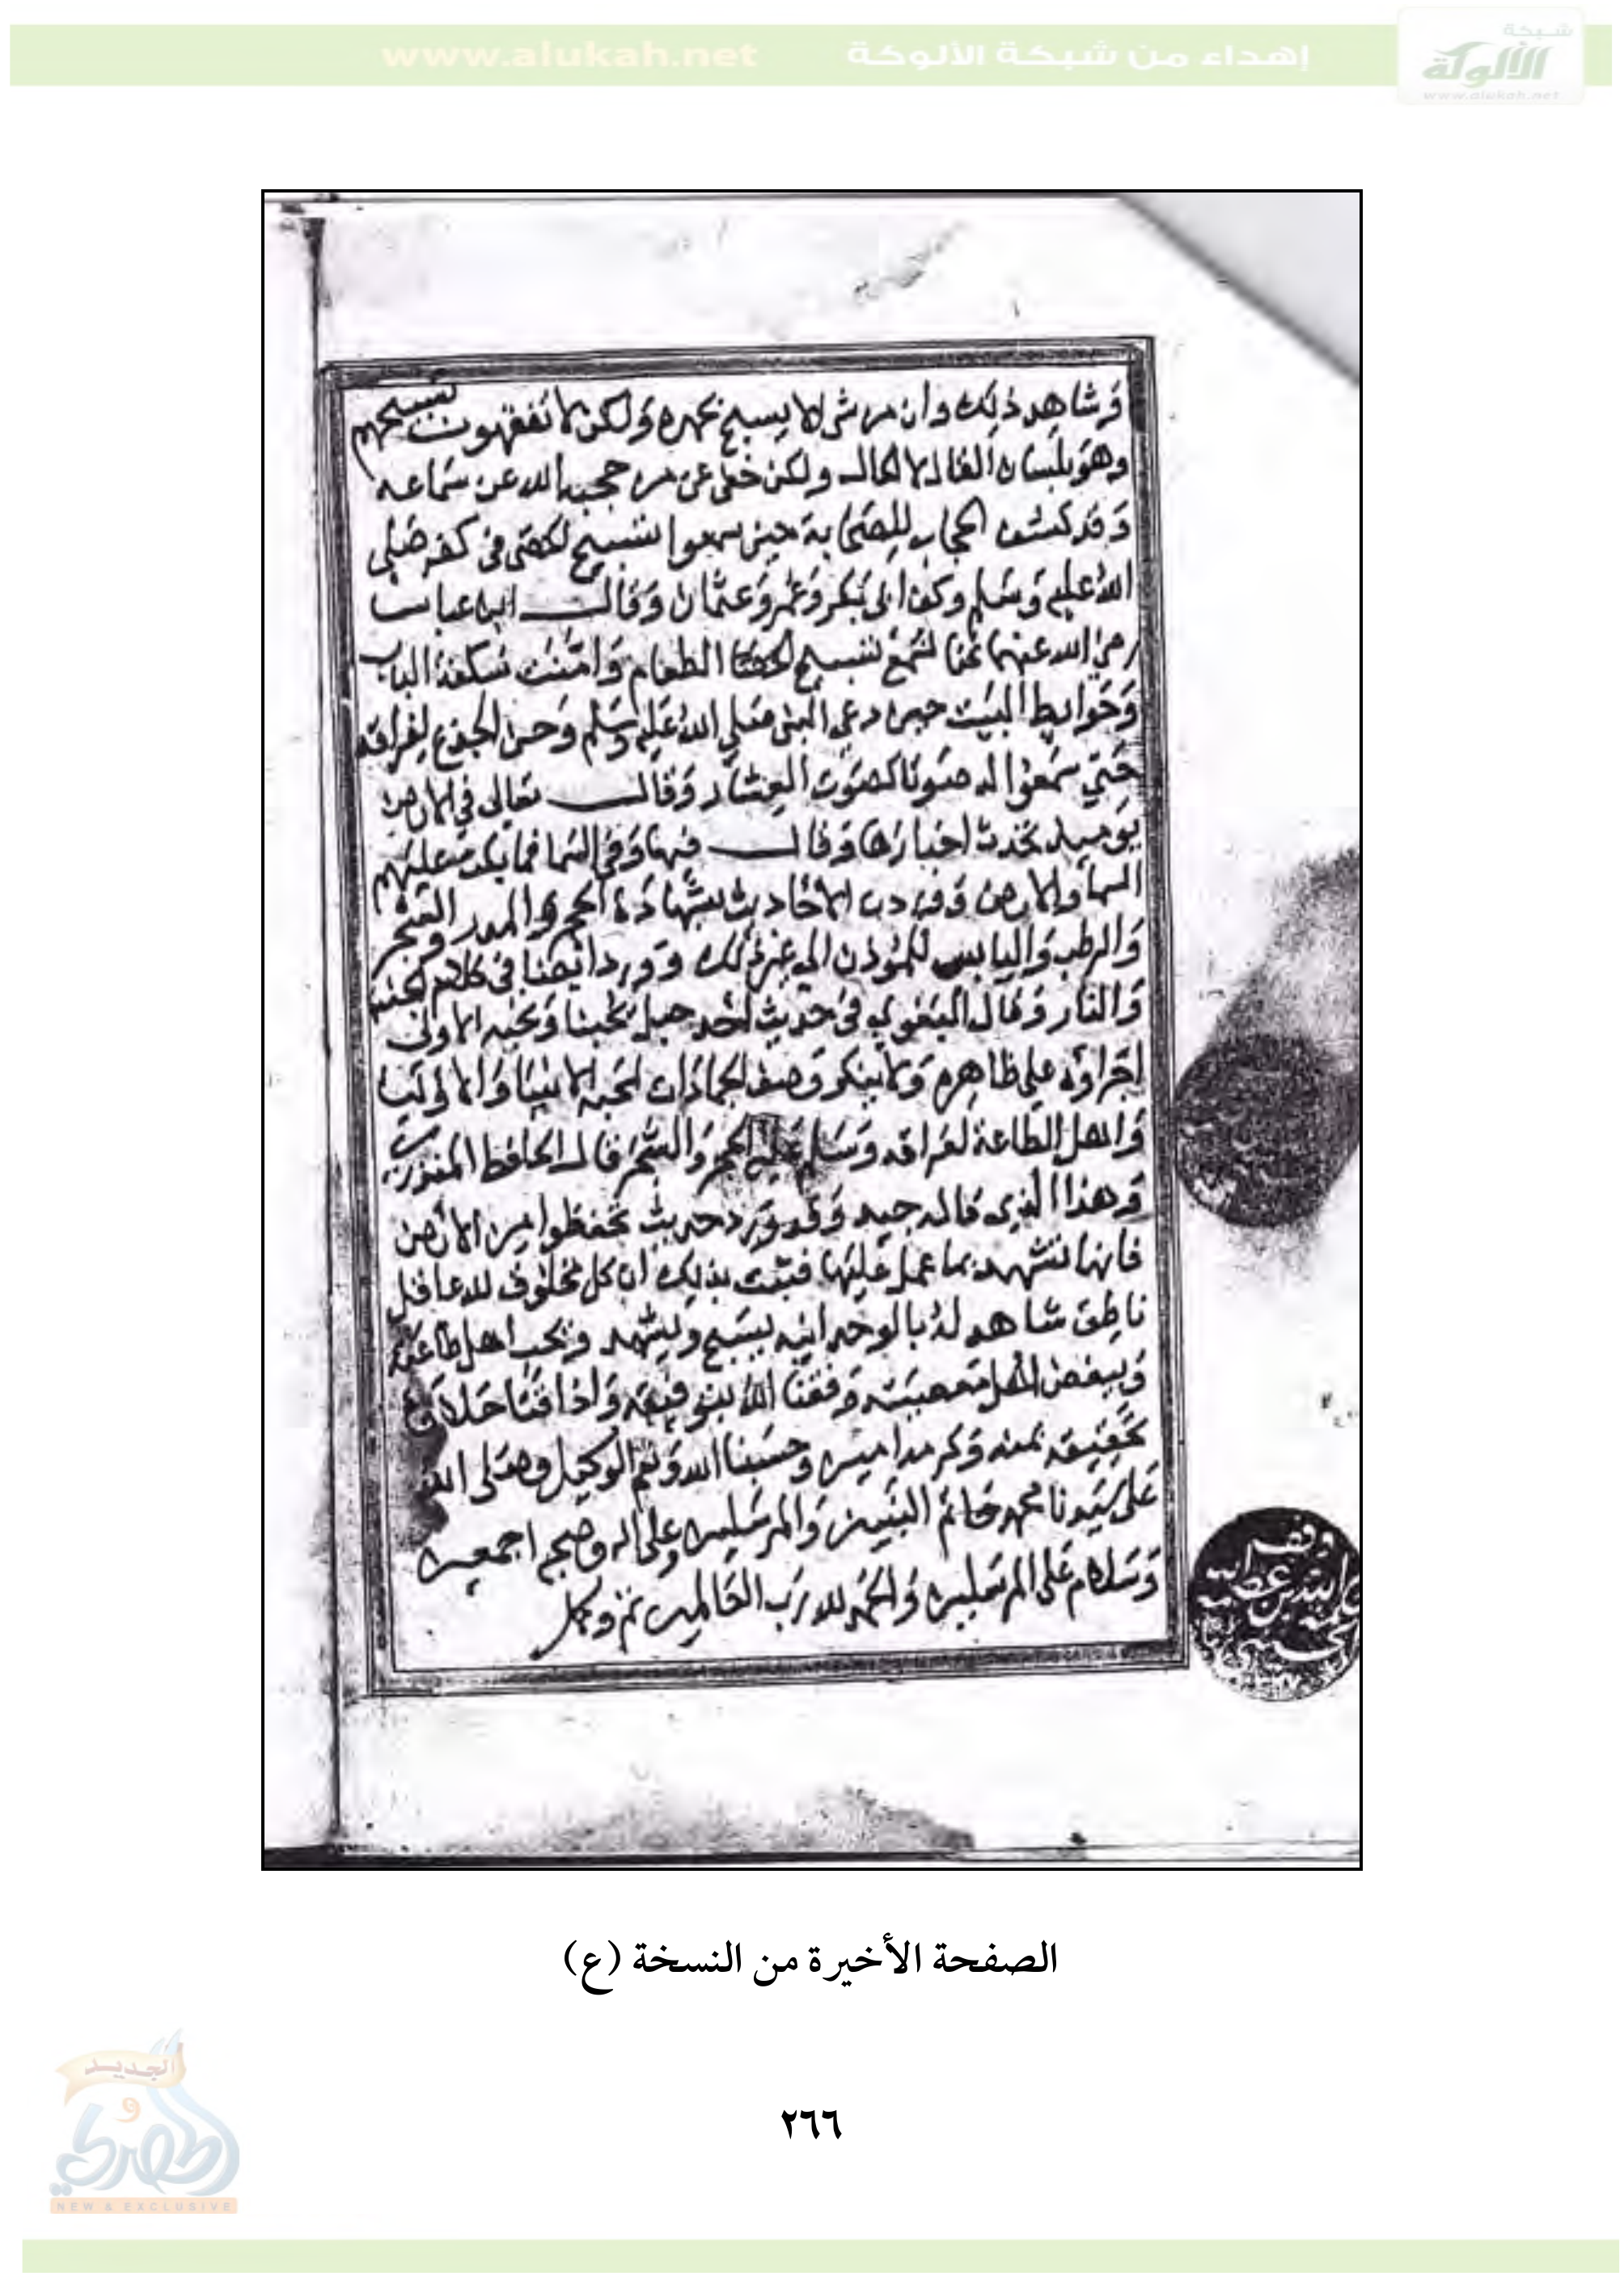 شبكة
الألوكة
www.alukah.net
إهداء من شبكة الألوكة
www.alukah.net
وشاهد ذلك وان من شي الا يسبح بحمده ولكن لا تفقهون تسبيحهم
وهو بلسان القال لا الحال ولكن خفى عن من حجبه الله عن سماعه
وقد كشف الحجاب للصحابة حين سمعوا تسبيح الحصى فى كفه صلى
الله عليه وسلم وكف ابى بكر وعمر وعثمان وقال ابن عباس
رضي الله عنهما كنا نسمع تسبيح الطعام وامنت سكفة الباب
وحوايط البيت حين دعى النبى صلى الله عليه وسلم وحن الجذع لفراقه
حتي سمعوا له صوتا كصوت العشار وقال تعالى في الارض
يوميذ تحدث اخبارها وقال فيها وفي السما فما بكت عليهم
السما والارض وفى الاحاديث شهادة الحجر والمدر والشجر
والرطب واليابس للمؤذن الى غير ذلك وورد ايضا فى كلام الجنة
والنار وقال البغوي فى حديث احد جبل يحبنا ونحبه الاولى
اجراؤه على ظاهره ولا ينكر وصف الجمادات لمحبة الانبيا والاوليا
واهل الطاعة لفراقه وسلم عليه الحجر والشجر قال الحافظ المنذري
وهذا الذى قاله جيد وقد ورد حديث تحفظوا من الارض
فانها تشهد بما عمل عليها فثبت بذلك ان كل مخلوق لله عاقل
ناطق شاهد له بالوحدانيه يسبح ويشهد ويحب اهل طاعته
ويبغض اهل معصيته وفقنا الله بتوفيقه واذاقنا حلاوة
تحقيقه بمنه وكرمه امين وحسبنا الله ونعم الوكيل وصلى الله
على سيدنا محمد خاتم النبيين والمرسلين وعلى اله وصحبه اجمعين
وسلام على المرسلين والحمد لله رب العالمين تم وكمل
وقف
عبد الله بن عطية
الصفحة الأخيرة من النسخة (ع)
٢٦٦
الجديد
و
الحصري
NEW & EXCLUSIVE